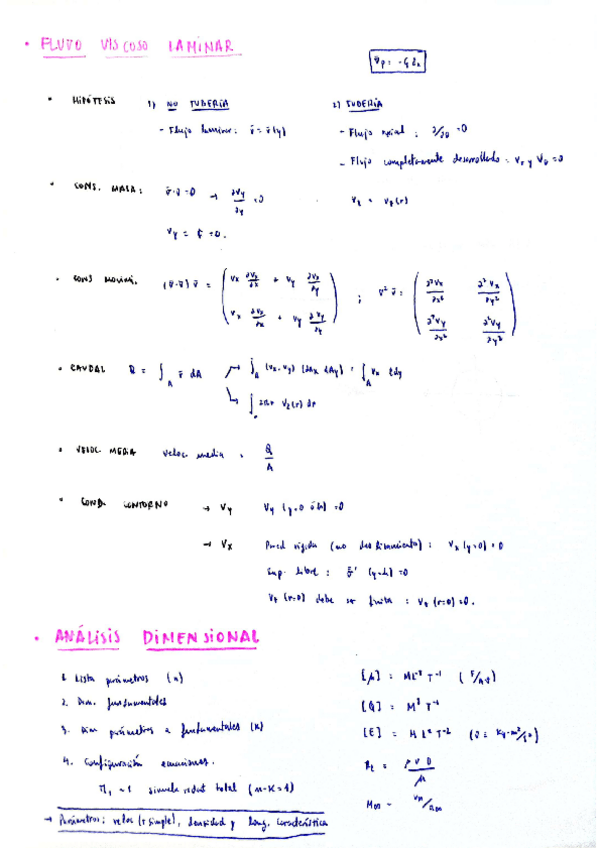 • FLUJO VISCOSO LAMINAR
∇p = -G ex
• HIPÓTESIS 1) NO TUBERÍA 2) TUBERÍA
- Flujo laminar: v̄ = v̄(y) - Flujo axial: ∂/∂θ = 0
- Flujo completamente desarrollado = vr y vθ = 0
• CONS. MASA: ∇·v̄ = 0 → ∂vy/∂y = 0 vz = vz(r)
vy = = 0.
• CONS MOVIMI. (v̄·∇) v̄ = ( vx ∂vx/∂x + vy ∂vx/∂y
vx ∂vy/∂x + vy ∂vy/∂y ) ; ∇² v̄ = ( ∂²vx/∂x² ∂²vx/∂y²
∂²vy/∂x² ∂²vy/∂y² )
• CAUDAL Q = ∫A v̄ dA → ∫A (vx, vy) (dAx dAy) = ∫A vx tdy
↳ ∫ 2πr vz(r) dr
• VELOC. MEDIA Veloc. media = Q/A
• COND. CONTORNO → vy vy (y=0 ó h) = 0
→ vx Pared rígida (no deslizamiento): vx (y=0) = 0
Sup. libre: (y=h) = 0
vz (r=0) debe ser finita: vz (r=0) = 0.
• ANÁLISIS DIMENSIONAL
1. Lista parámetros (n) [μ] =
2. Dim. fundamentales [Q] =
3. Dim parámetros a fundamentales (K) [E] = M L² T⁻²
4. Configuración ecuaciones. Re = ρ v D / μ
π1 ~ 1 total (n-K=1)
→ Parámetros: veloc (+ simple), densidad y long. característica